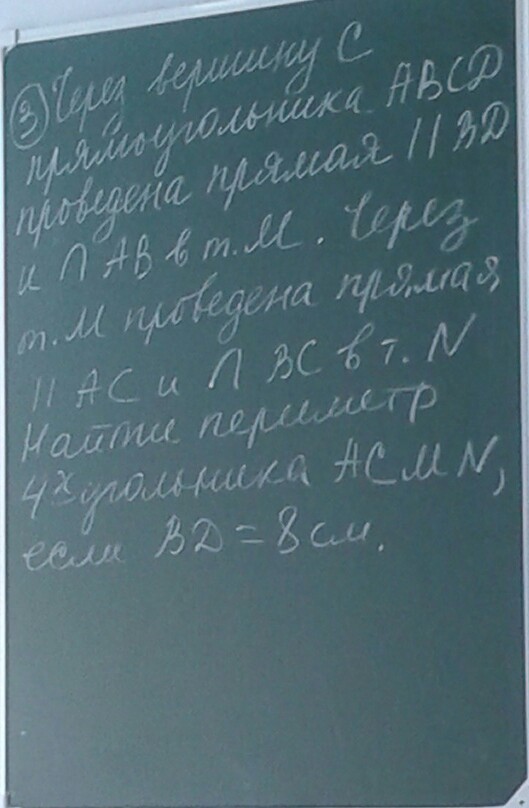 ③ Через вершину C
прямоугольника ABCD
проведена прямая || BD
и ∩ AB в т. M. Через
т. M проведена прямая
|| AC и ∩ BC в т. N
Найти периметр
4х угольника ACMN,
если BD = 8 см.